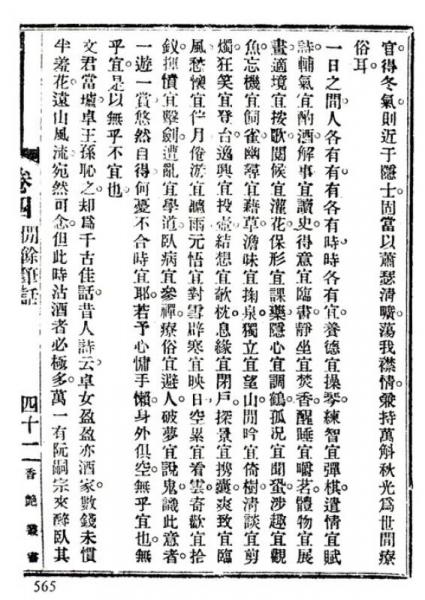 官得冬氣則近于隱士固當以蕭瑟清曠蕩我襟情兼持萬斛秋光爲世間療
俗耳
一日之間人各有有有各有時時各有宜養德宜操琴練智宜彈棋遣情宜賦
詩輔氣宜酌酒解事宜讀史得意宜臨書靜坐宜焚香醒睡宜嚼茗體物宜展
畫適境宜按歌閱候宜灌花保形宜課藥隱心宜調鶴孤況宜聞蛩涉趣宜觀
魚忘機宜飼雀幽尋宜藉草澹味宜掬泉獨立宜望山閒吟宜倚樹清談宜剪
燭狂笑宜登台逸興宜投壺結想宜欹枕息緣宜閉戶探景宜攜囊爽致宜臨
風愁懷宜佇月倦游宜聽雨元悟宜對雪辟寒宜映日空累宜看雲奇歡宜拾
釵揮憤宜擊劍遭亂宜學道臥病宜參禪療俗宜避人破夢宜說鬼識此意者
一遊一賞悠然自得何憂不合時宜耶若予心慵手懶身外俱空無乎宜也無
乎宜是以無乎不宜也
文君當壚卓王孫恥之却爲千古佳話昔人詩云卓女盈盈亦酒家數錢未慣
半羞花遠山風流宛然可念但此時沽酒者必極多萬一有阮嗣宗來醉臥其
卷四 閒餘筆話 四十二 香艷叢書
565